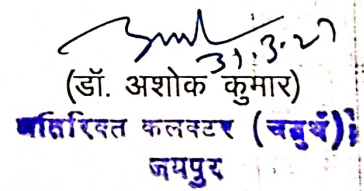 31.3.27
(डॉ. अशोक कुमार)
अतिरिक्त कलक्टर (चतुर्थ)
जयपुर